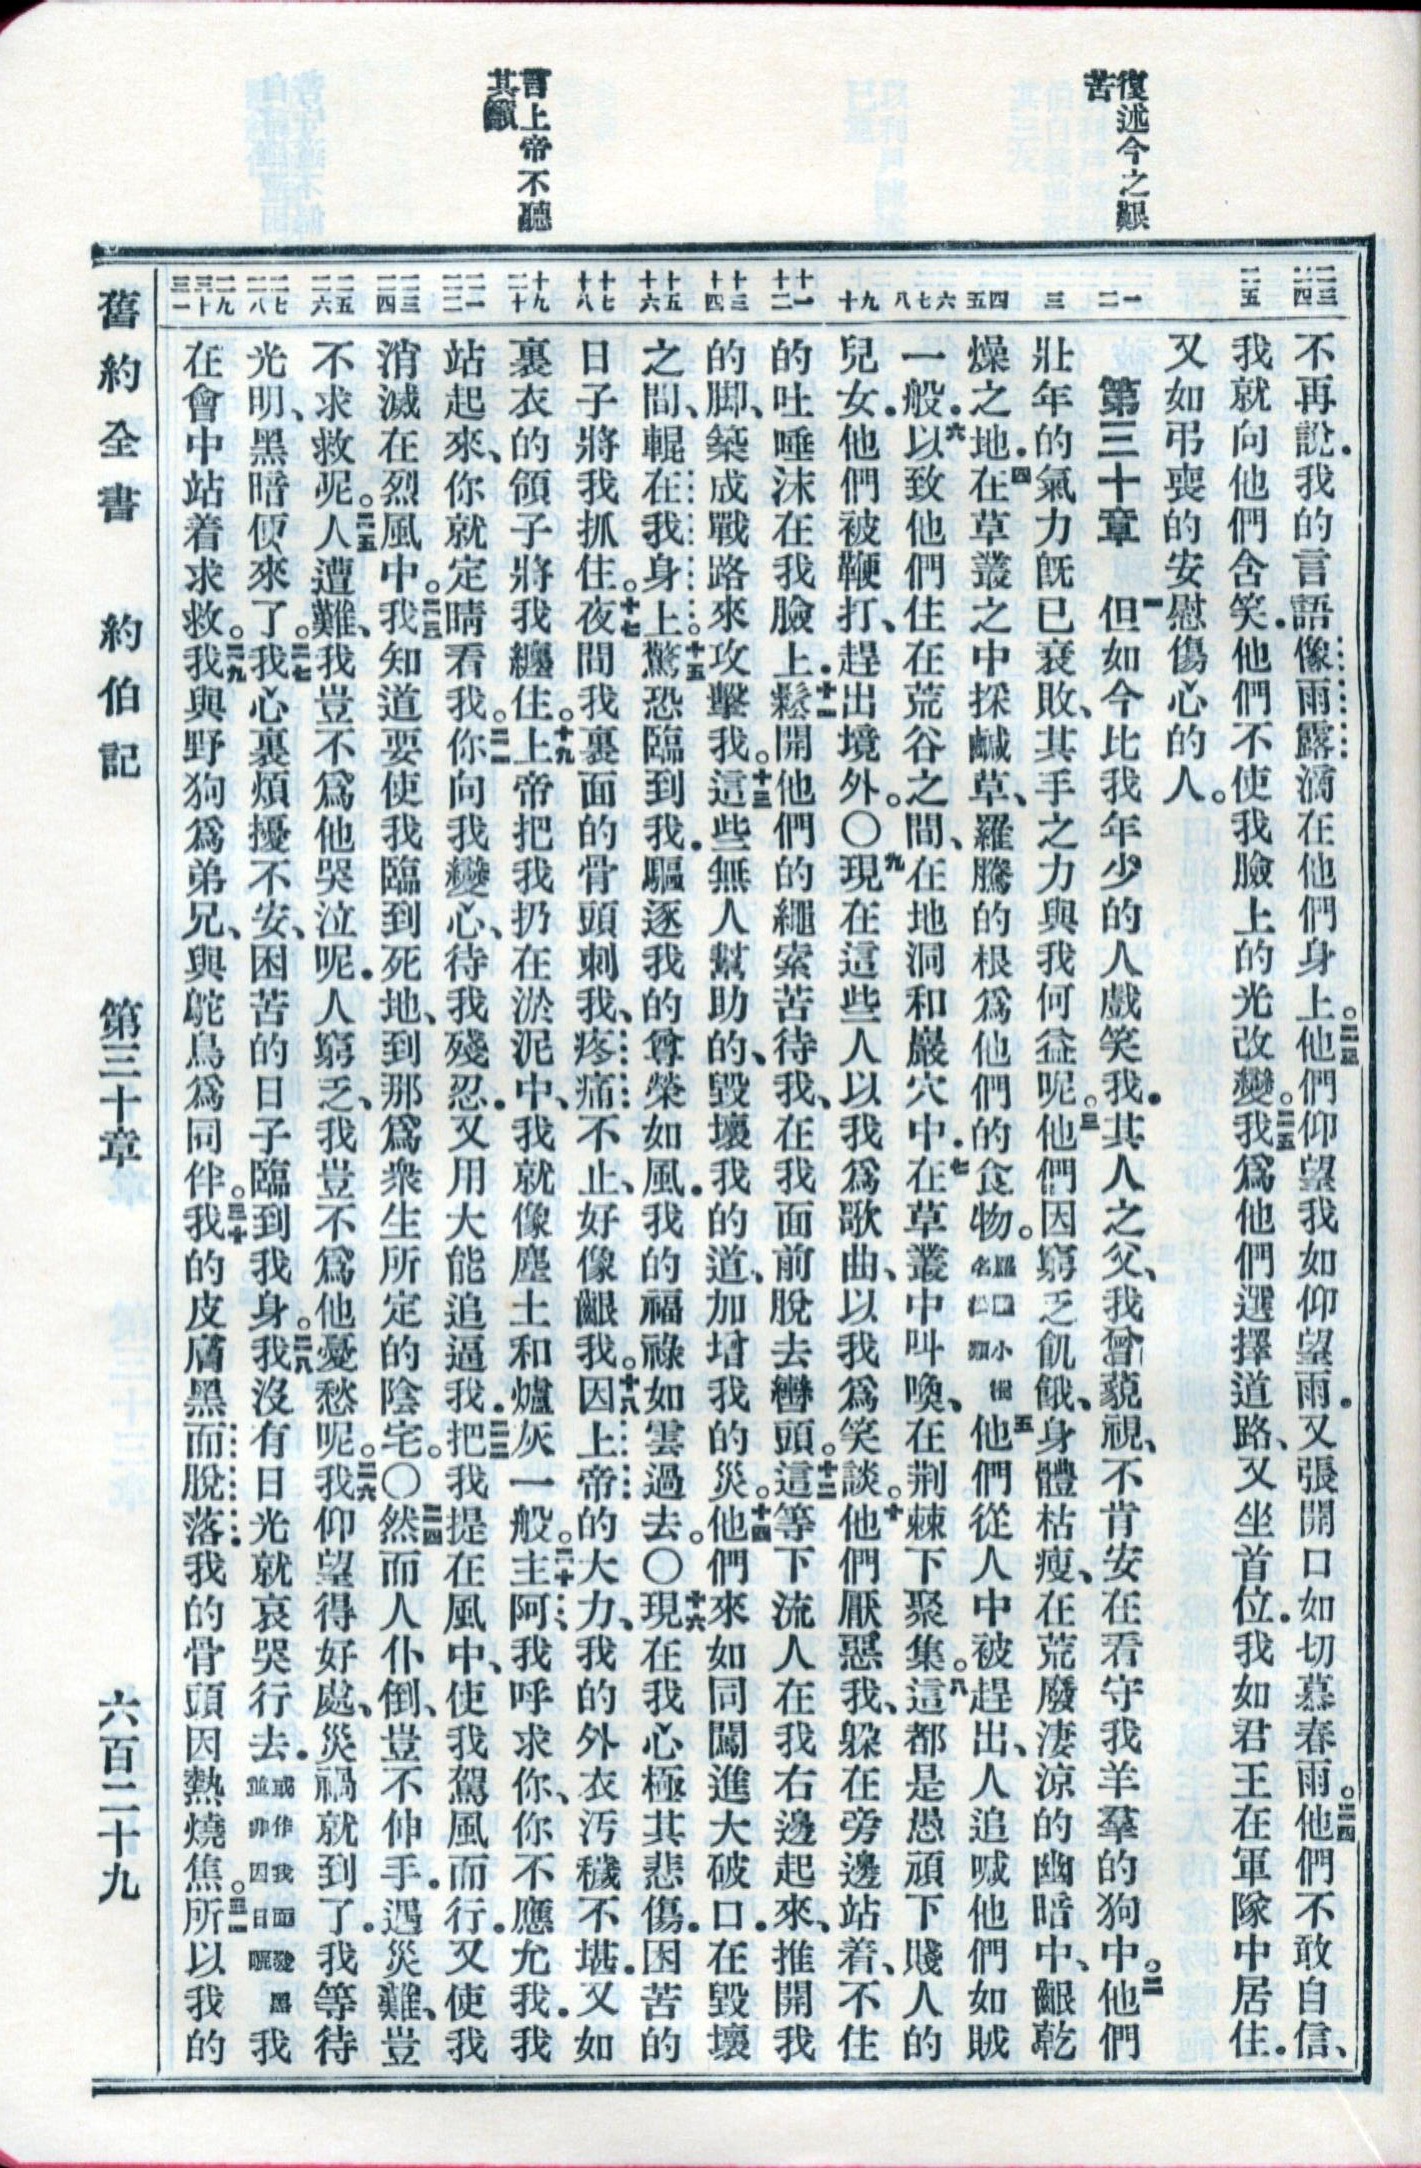 復述今之艱
苦
言上帝不聽
其籲
二三 二四
二五
一 二
三
四 五
六 七 八
九 十
十一 十二
十三 十四
十五 十六
十七 十八
十九 二十
二一 二二
二三 二四
二五 二六
二七 二八
二九 三十 三一
不再說．我的言語像雨露滴在他們身上。二三他們仰望我如仰望雨．又張開口如切慕春雨。二四他們不敢自信、
我就向他們含笑．他們不使我臉上的光改變。二五我爲他們選擇道路、又坐首位．我如君王在軍隊中居住．
又如弔喪的安慰傷心的人。
第三十章　一但如今比我年少的人戲笑我．其人之父、我曾藐視、不肯安在看守我羊羣的狗中。二他們
壯年的氣力旣已衰敗、其手之力與我何益呢。三他們因窮乏飢餓、身體枯瘦、在荒廢淒涼的幽暗中、齦乾
燥之地．四在草叢之中採鹹草、羅騰的根爲他們的食物。羅騰小樹名松類五他們從人中被趕出、人追喊他們如賊
一般．六以致他們住在荒谷之間、在地洞和巖穴中．七在草叢中叫喚、在荆棘下聚集。八這都是愚頑下賤人的
兒女．他們被鞭打、趕出境外。〇九現在這些人以我爲歌曲、以我爲笑談。十他們厭惡我、躲在旁邊站着、不住
的吐唾沫在我臉上．十一鬆開他們的繩索苦待我、在我面前脫去轡頭。十二這等下流人在我右邊起來、推開我
的脚、築成戰路來攻擊我。十三這些無人幫助的、毀壞我的道、加增我的災。十四他們來如同闖進大破口．在毀壞
之間、輥在我身上。十五驚恐臨到我．驅逐我的尊榮如風．我的福祿如雲過去。〇十六現在我心極其悲傷．困苦的
日子將我抓住。十七夜間我裏面的骨頭刺我、疼痛不止、好像齦我。十八因上帝的大力、我的外衣汚穢不堪．又如
裏衣的領子將我纏住。十九上帝把我扔在淤泥中、我就像塵土和爐灰一般。二十主阿、我呼求你、你不應允我．我
站起來、你就定睛看我。二一你向我變心、待我殘忍．又用大能追逼我．二二把我提在風中、使我駕風而行．又使我
消滅在烈風中。二三我知道要使我臨到死地、到那爲衆生所定的陰宅。〇二四然而人仆倒、豈不伸手．遇災難、豈
不求救呢。二五人遭難、我豈不爲他哭泣呢．人窮乏、我豈不爲他憂愁呢。二六我仰望得好處、災禍就到了．我等待
光明、黑暗便來了。二七我心裏煩擾不安、困苦的日子臨到我身。二八我沒有日光就哀哭行去．或作我面發黑並非因日曬我
在會中站着求救。二九我與野狗爲弟兄、與鴕鳥爲同伴。三十我的皮膚黑而脫落．我的骨頭因熱燒焦。三一所以我的
舊約全書　約伯記　第三十章　六百二十九